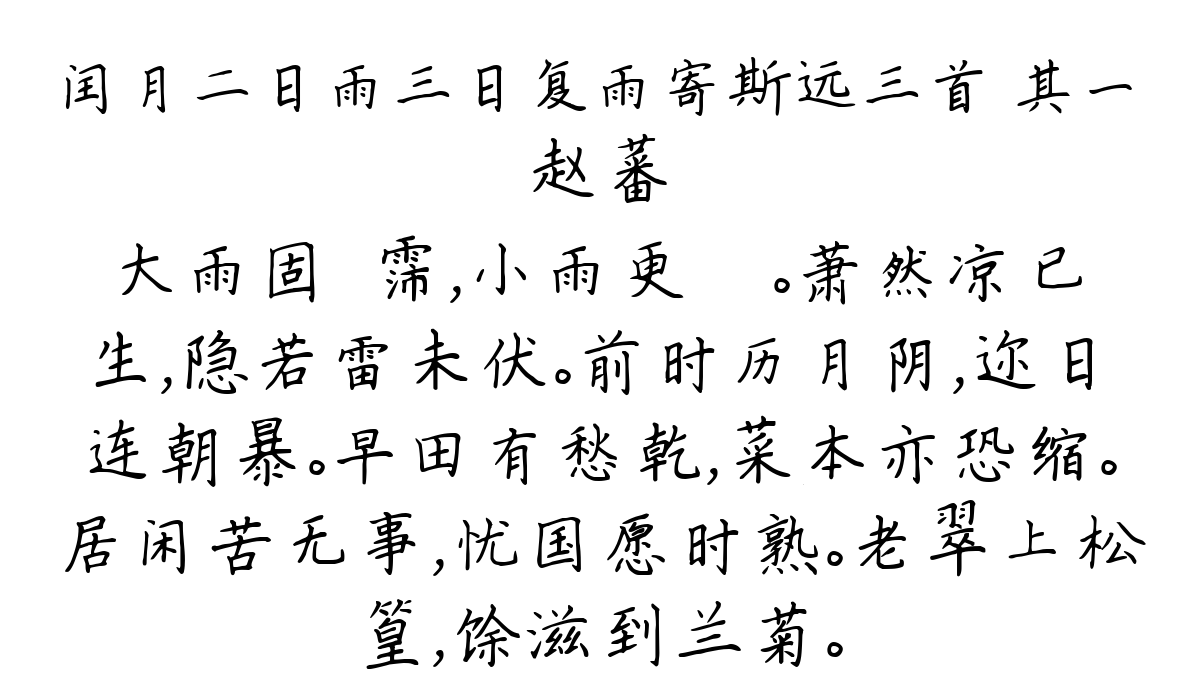 闰月二日雨三日复雨寄斯远三首 其一
赵蕃
大雨固 霈,小雨更 。萧然凉已
生,隐若雷未伏。前时历月阴,迩日
连朝暴。早田有愁乾,菜本亦恐缩。
居闲苦无事,忧国愿时熟。老翠上松
篁,馀滋到兰菊。